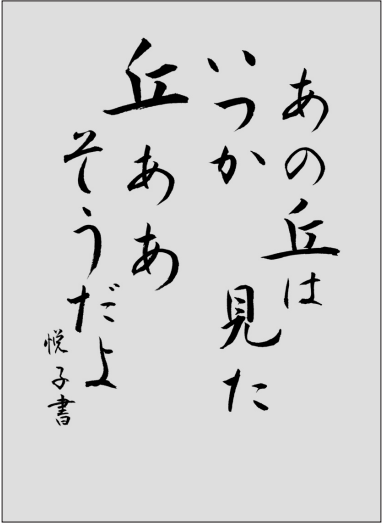 あの丘は
いつか見た
丘ああ
そうだよ
悦子書